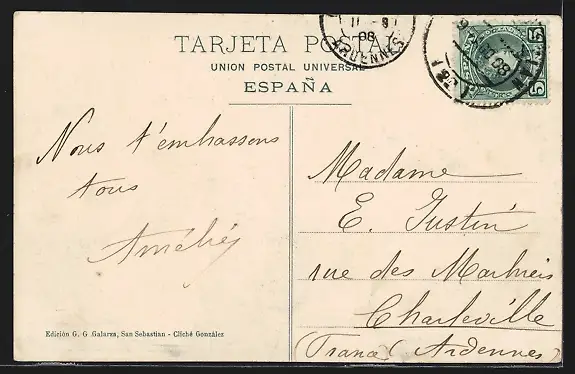 TARJETA POSTAL
UNION POSTAL UNIVERSAL
ESPAÑA
11 - 8
08
ARDENNES
Nous t'embrassons
tous
Amélie
Madame
E. Justin
rue des
Charleville
France (Ardennes)
Edición G. G. Galarza, San Sebastian - Cliché González